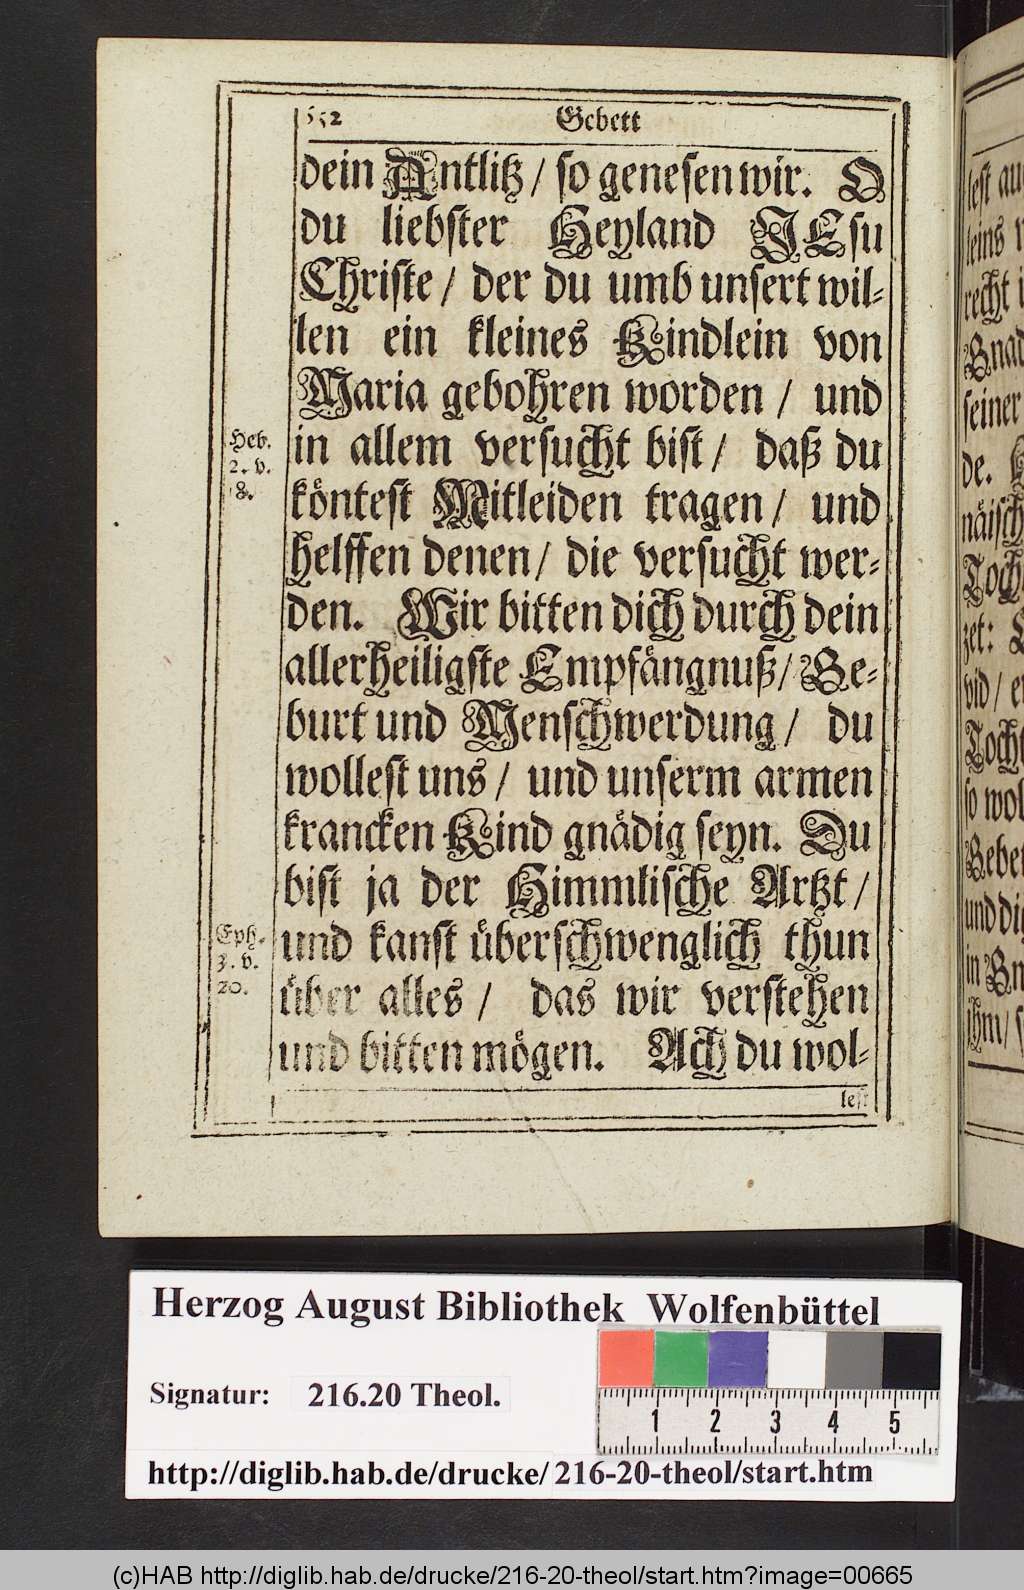 652 Gebett
dein Antlitz / so genesen wir. O
du liebster Heyland JEsu
Christe / der du umb unsert wil-
len ein kleines Kindlein von
Maria gebohren worden / und
in allem versucht bist / daß du
köntest Mitleiden tragen / und
helffen denen / die versucht wer-
den. Wir bitten dich durch dein
allerheiligste Empfängnuß / Ge-
burt und Menschwerdung / du
wollest uns / und unserm armen
krancken Kind gnädig seyn. Du
bist ja der Himmlische Artzt /
und kanst überschwenglich thun
über alles / das wir verstehen
und bitten mögen. Ach du wol-
lest
Heb.
2. v.
18.
Eph.
3. v.
20.
lest
leins
recht
seiner
de.
zet:
vid /
so
und
in
ihm /
Herzog August Bibliothek Wolfenbüttel
Signatur: 216.20 Theol.
1 2 3 4 5
http://diglib.hab.de/drucke/216-20-theol/start.htm
(c)HAB http://diglib.hab.de/drucke/216-20-theol/start.htm?image=00665